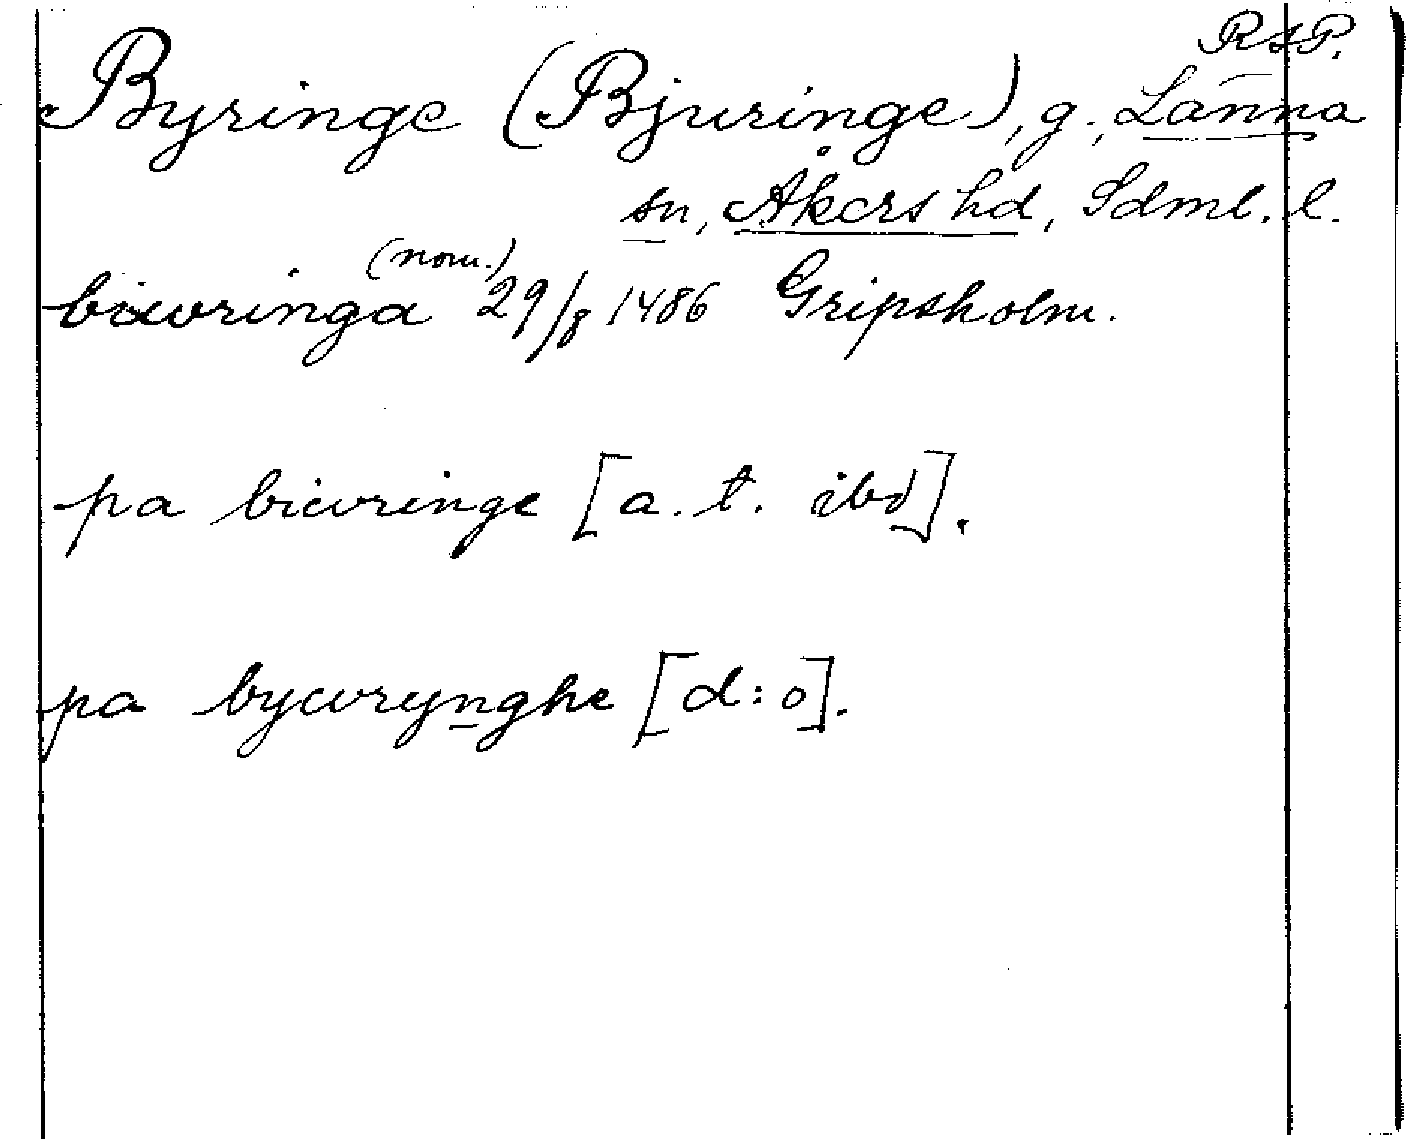 RAP.
Byringe (Bjuringe), g., Länna
sn, Åkers hd, Sdml. l.
biwringa (nom.) 29/8 1486 Gripsholm.
pa biwringe [a. t. ibd].
pa bywrynghe [d:o].